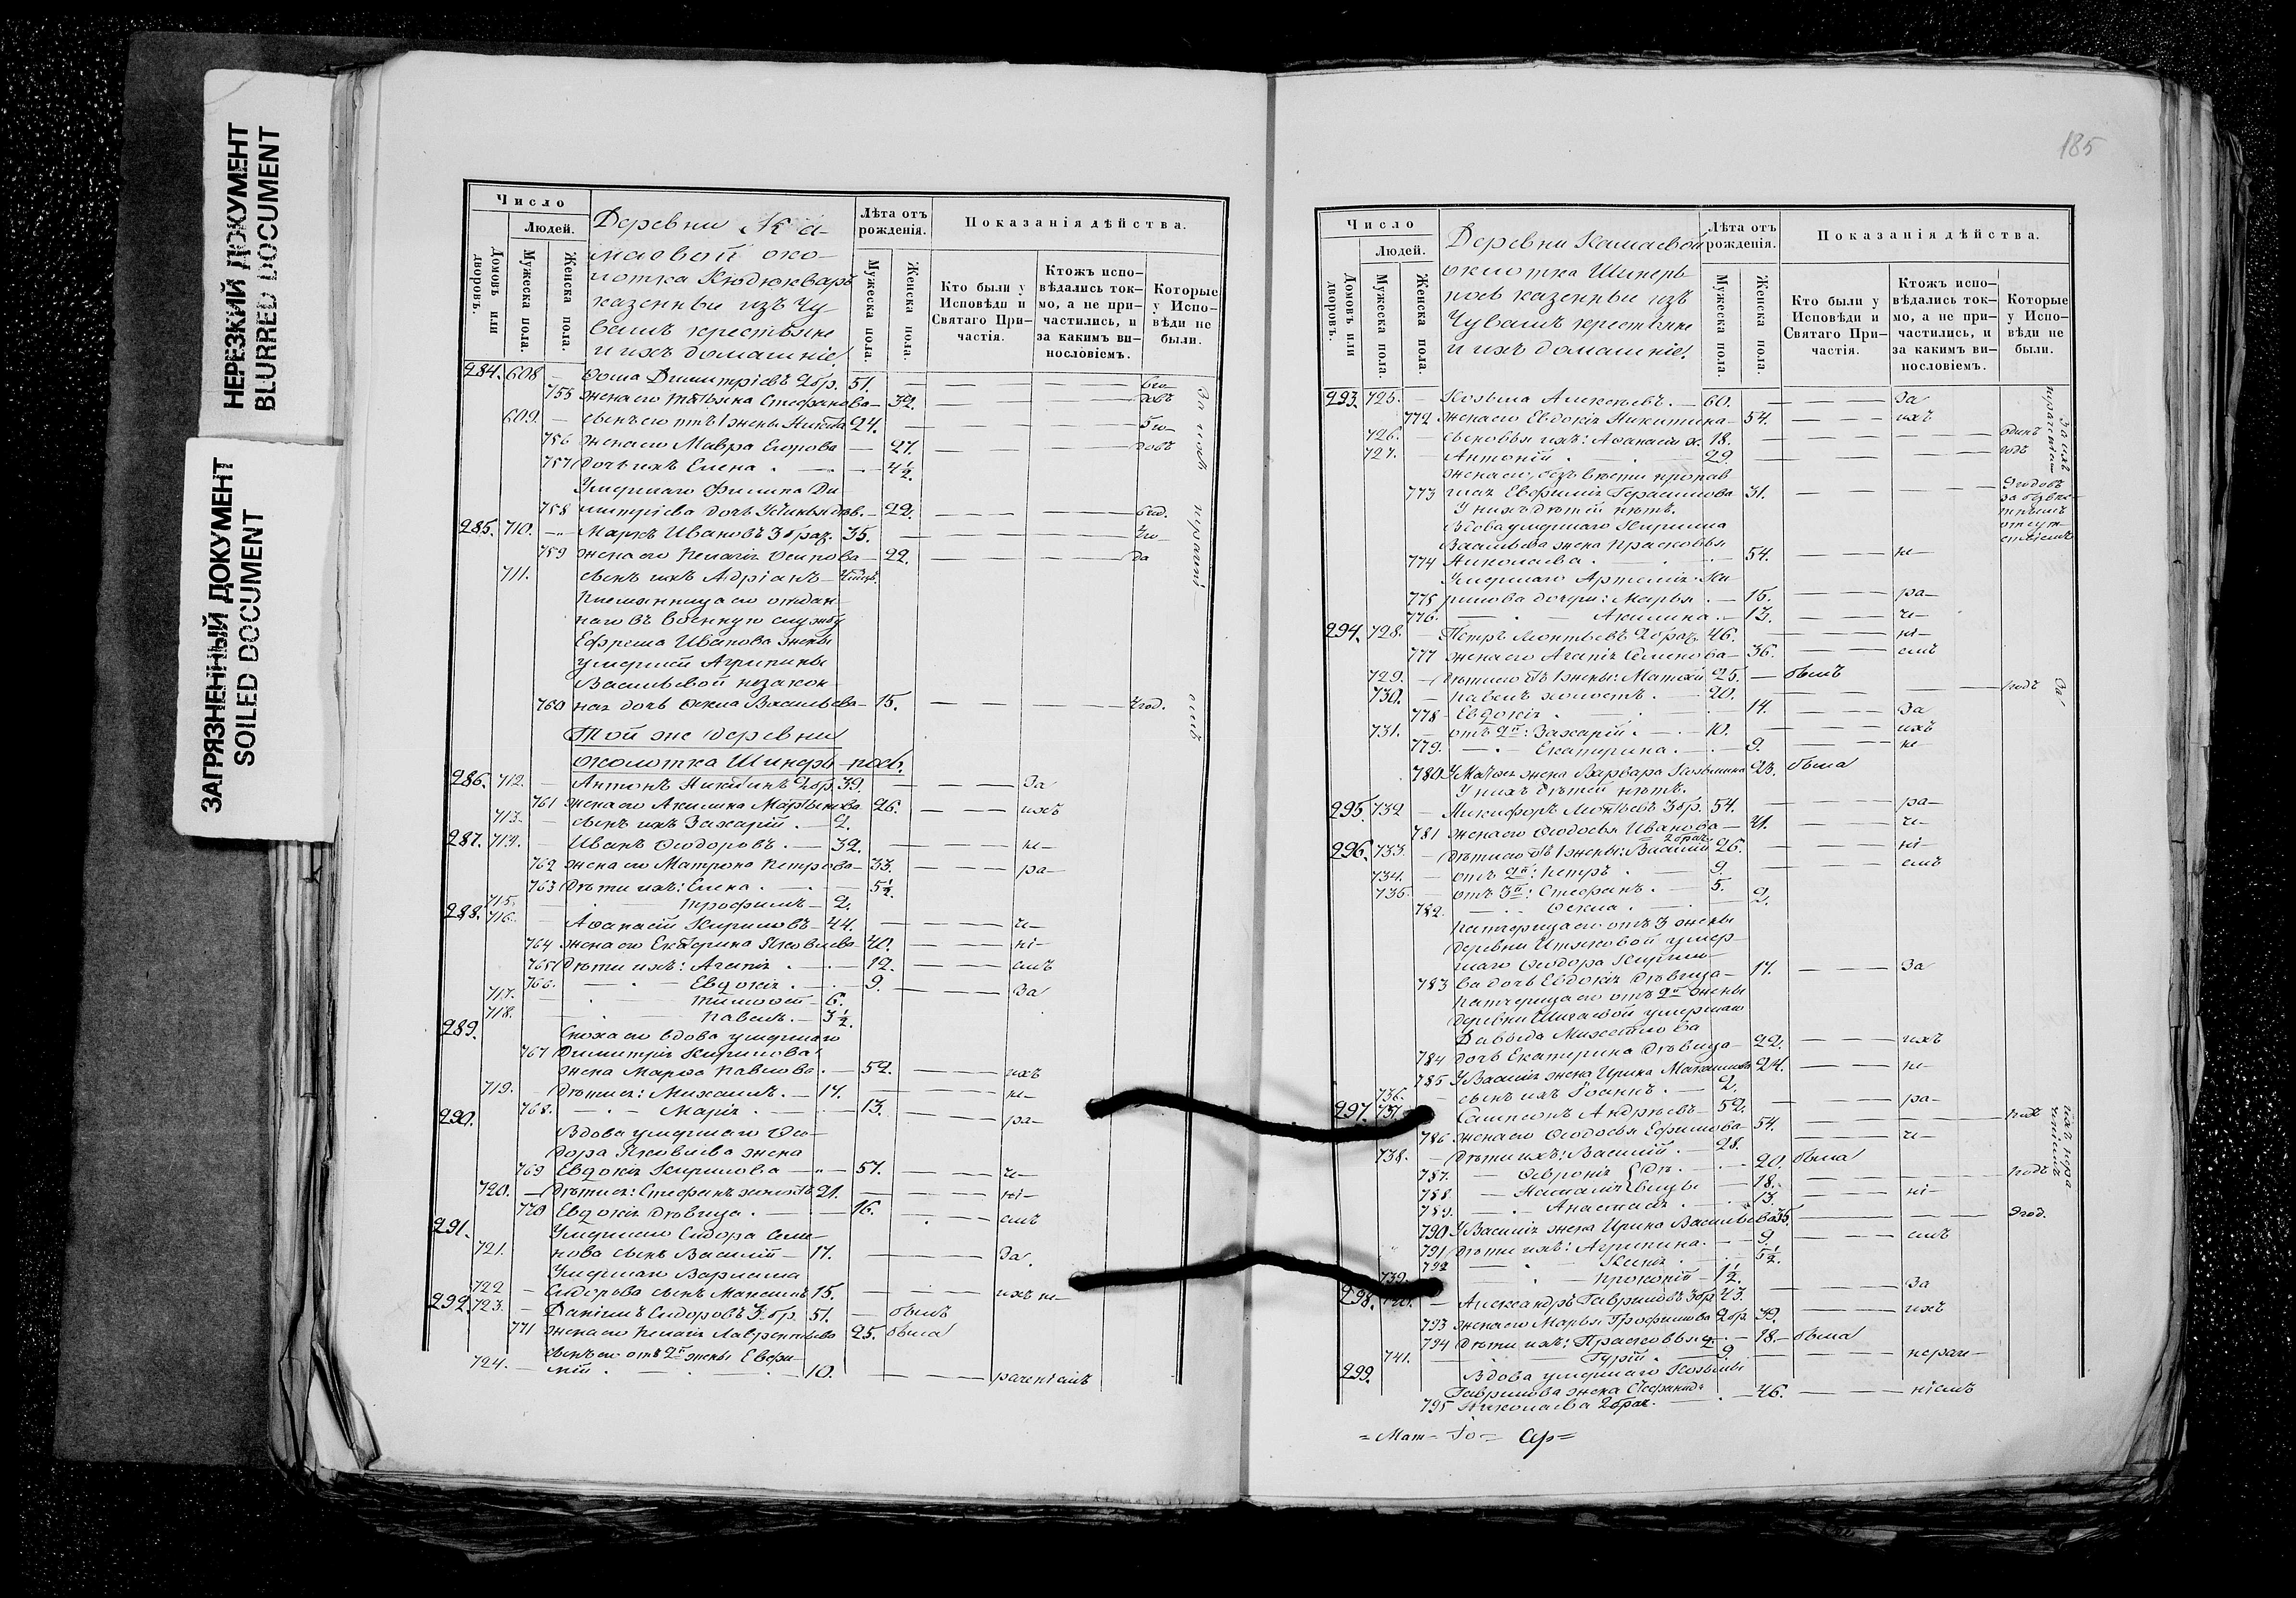 НЕРЕЗКИЙ ДОКУМЕНТ
BLURRED DOCUMENT
ЗАГРЯЗНЕННЫЙ ДОКУМЕНТ
SOILED DOCUMENT
Число
Людей.
Домовъ или дворовъ.
Мужеска пола.
Женска пола.
Деревни Ка-
маевой око-
лотка Кюдюкваръ
казенные изъ Чу-
вашъ крестьяне
и ихъ домашніе
Лѣта отъ рожденія.
Мужеска пола.
Женска пола.
Показанія дѣйства.
Кто были у Исповѣди и Святаго Причастія.
Ктожъ исповѣдались токмо, а не причастились, и за какимъ винословіемъ.
Которые у Исповѣди не были.
284. 608 — Ѳома Димитріевъ 2 бр. 51.
755 жена его Татьяна Стефанова — 39.
609. — сынъ его отъ 1 жены Никита 24.
756 жена его Мавра Егорова — 27. довъ
757 дочь ихъ Елена — 4½.
Умершаго Филипа Ди-
758 митріева дочь Устинья дѣв. — 22. 6 год.
285. 710. Маркъ Ивановъ 3 брач. 35.
759 жена его Пелагія Осипова — 22. да
711. сынъ ихъ Адріанъ —
Племянница его отдан-
наго въ военную службу
Ефрема Иванова жены
умершей Агрипины
Васильевой незакон-
760 ная дочь Ѳекла Васильева — 15. 4 год.
За ихъ нераченіемъ
Той же деревни
околотка Шинеръ-посъ.
286. 712. — Антонъ Никитинъ 2 бр. 39. За
761 жена его Акилина Мартынова 26. ихъ
713. — сынъ ихъ Захарій — 2.
287. 714. — Иванъ Ѳеодоровъ — 32. не-
762 жена его Матрона Петрова — 33. ра-
763 Дѣти ихъ: Елена — 5½
715. Трофимъ — 2.
288. 716. Аѳанасій Кириловъ — 44. че-
764 жена его Екатерина Яковлева 40. ні-
765 Дѣти ихъ: Агапія — 12. емъ
766. Евдокія — 9.
717. Тимоѳей — 6. За
718. Павелъ — 3½.
289. Сноха его вдова умершаго
767 Димитрія Кирилова
жена Марѳа Павлова — 52. ихъ
719. — Дѣти ея: Михаилъ. — 17. не-
768. Марія — 13. ра-
290. Вдова умершаго Ѳео-
дора Яковлева жена
769 Евдокія Кирилова — 57. че-
720. — Дѣти ея: Стефанъ холостъ 21. ні-
770 Евдокія дѣвица — 16. емъ
291. Умершаго Сидора Семе-
721. нова сынъ Василій — 17. За.
Умершаго Варлама
722 — Сидорова сынъ Максимъ 15. ихъ не-
292. 723. — Даніилъ Сидоровъ 3 бр. 51. — былъ
771 жена его Пелагія Лаврентьева 25. была
сынъ его отъ 2й жены Евѳи-
724. — мій — 10. раченіемъ
185
Число
Людей.
Домовъ или дворовъ.
Мужеска пола.
Женска пола.
Деревни Камаевой
околотка Шинеръ-
посъ казенные изъ
Чувашъ крестьяне
и ихъ домашніе.
Лѣта отъ рожденія.
Мужеска пола.
Женска пола.
Показанія дѣйства.
Кто были у Исповѣди и Святаго Причастія.
Ктожъ исповѣдались токмо, а не причастились, и за какимъ винословіемъ.
Которые у Исповѣди не были.
293. 725. — Козьма Алексѣевъ. — 60. За
772 жена его Евдокія Никитина — 54. ихъ
726. сыновья ихъ: Аѳанасій х. 18. одинъ
727. — Антоній — 29 годъ
За ихъ нераченіемъ
жена его, безъ вѣсти пропав-
773 шая Евфимія Герасимова 31. 9 годовъ
У нихъ дѣтей нѣтъ. за безвѣстнымъ отсутствіемъ
Вдова умершаго Кирилла
Васильева жена Прасковья
774 Николаева — 54. не-
Умершаго Артемія Ки-
775 рилова дочери: Марья — 15. ра-
776. — Акилина — 13. че-
294. 728. — Петръ Леонтьевъ 2 брач. 46. ні-
777 жена его Агапія Семенова — 36. емъ
729. — Дѣти его отъ 1 жены: Матѳій 25. — былъ
730. — Павелъ холостъ. — 20. годъ
778 — Евдокія — 14. За
731. — отъ 2й: Захарій — 10. ихъ
779. — Екатерина — 9. не-
780 У Матѳія жена Варвара Козьмина 23. была
У нихъ дѣтей нѣтъ.
295. 732 — Никифоръ Леонтьевъ 3 бр. 54. ра-
781 жена его Ѳеодосья Иванова — 41. че-
2 брач.
296. 733. — Дѣти его отъ 1 жены: Василій 26. ні-
734. — отъ 2й: Петръ — 9. емъ
735. — отъ 3й: Стефанъ — 5.
782. — Ѳекла — 2.
Падчерица его отъ 3 жены
деревни Итяковой умер-
шаго Ѳеодора Кирило-
783 ва дочь Евдокія дѣвица — 17. За
Падчерица его отъ 2й жены
деревни Шигаевой умершаго
Давыда Михайлова
784 дочь Екатерина дѣвица — 22. ихъ
785 У Василія жена Ирина 24. не-
736. сынъ ихъ Іоаннъ — 2.
297. 737. Сампсонъ Андреевъ — 52. ра-
786 жена его Ѳеодосья Ефимова 54.
738. — Дѣти ихъ: Василій — 28. че-
787. — Ѳевронія дѣ- — 20. была
788. — Наталія вицы — 18. годъ
789. — Анастасія — 13. ні-
790 У Василія жена Ирина Васильева 35. 9 год.
791 Дѣти ихъ: Агрипина — 9. емъ
792 Ксенія — 5½
739. Прокопій — 1½.
За ихъ нераченіемъ
298. 740. — Александръ Гавриловъ 3 бр. 43. За
793 жена его Марья Трофимова 2 бр. 39. ихъ
794 Дѣти ихъ: Прасковья — 18. — была
741. Гурій — 9. нераче-
299. Вдова умершаго Козьмы
Гаврилова жена Стефанида
795 Николаева 2 брач. — 46. ніемъ